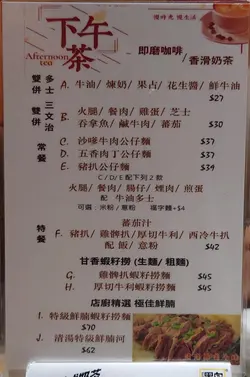 下午茶
Afternoon tea
即磨咖啡/
/香滑奶茶
雙併 多士 A. 牛油/ 煉奶/ 果占/ 花生醬/ 鮮牛油
$27
雙併 三文治 B. 火腿/ 餐肉/ 雞蛋/ 芝士
吞拿魚/ 鹹牛肉/ 蕃茄 $30
常餐 C. 沙嗲牛肉公仔麵 $37
D. 五香肉丁公仔麵 $37
E. 豬扒公仔麵 $39
C / D / E 配下列 2 款
火腿/ 餐肉/ 腸仔/ 煙肉/ 煎蛋
配 牛油多士
可選：米粉/ 意粉 福字麵+$4
特餐 蕃茄汁
F. 豬扒/ 雞髀扒/ 厚切牛利/ 西冷牛扒
配 飯/ 意粉 $42
甘香蝦籽撈 (生麵/ 粗麵)
G. 雞髀扒蝦籽撈麵 $45
H. 厚切牛利蝦籽撈麵 $45
店廚精選 極佳鮮腩
I. 特級鮮腩蝦籽撈麵
$70
J. 清湯特級鮮腩河
$62